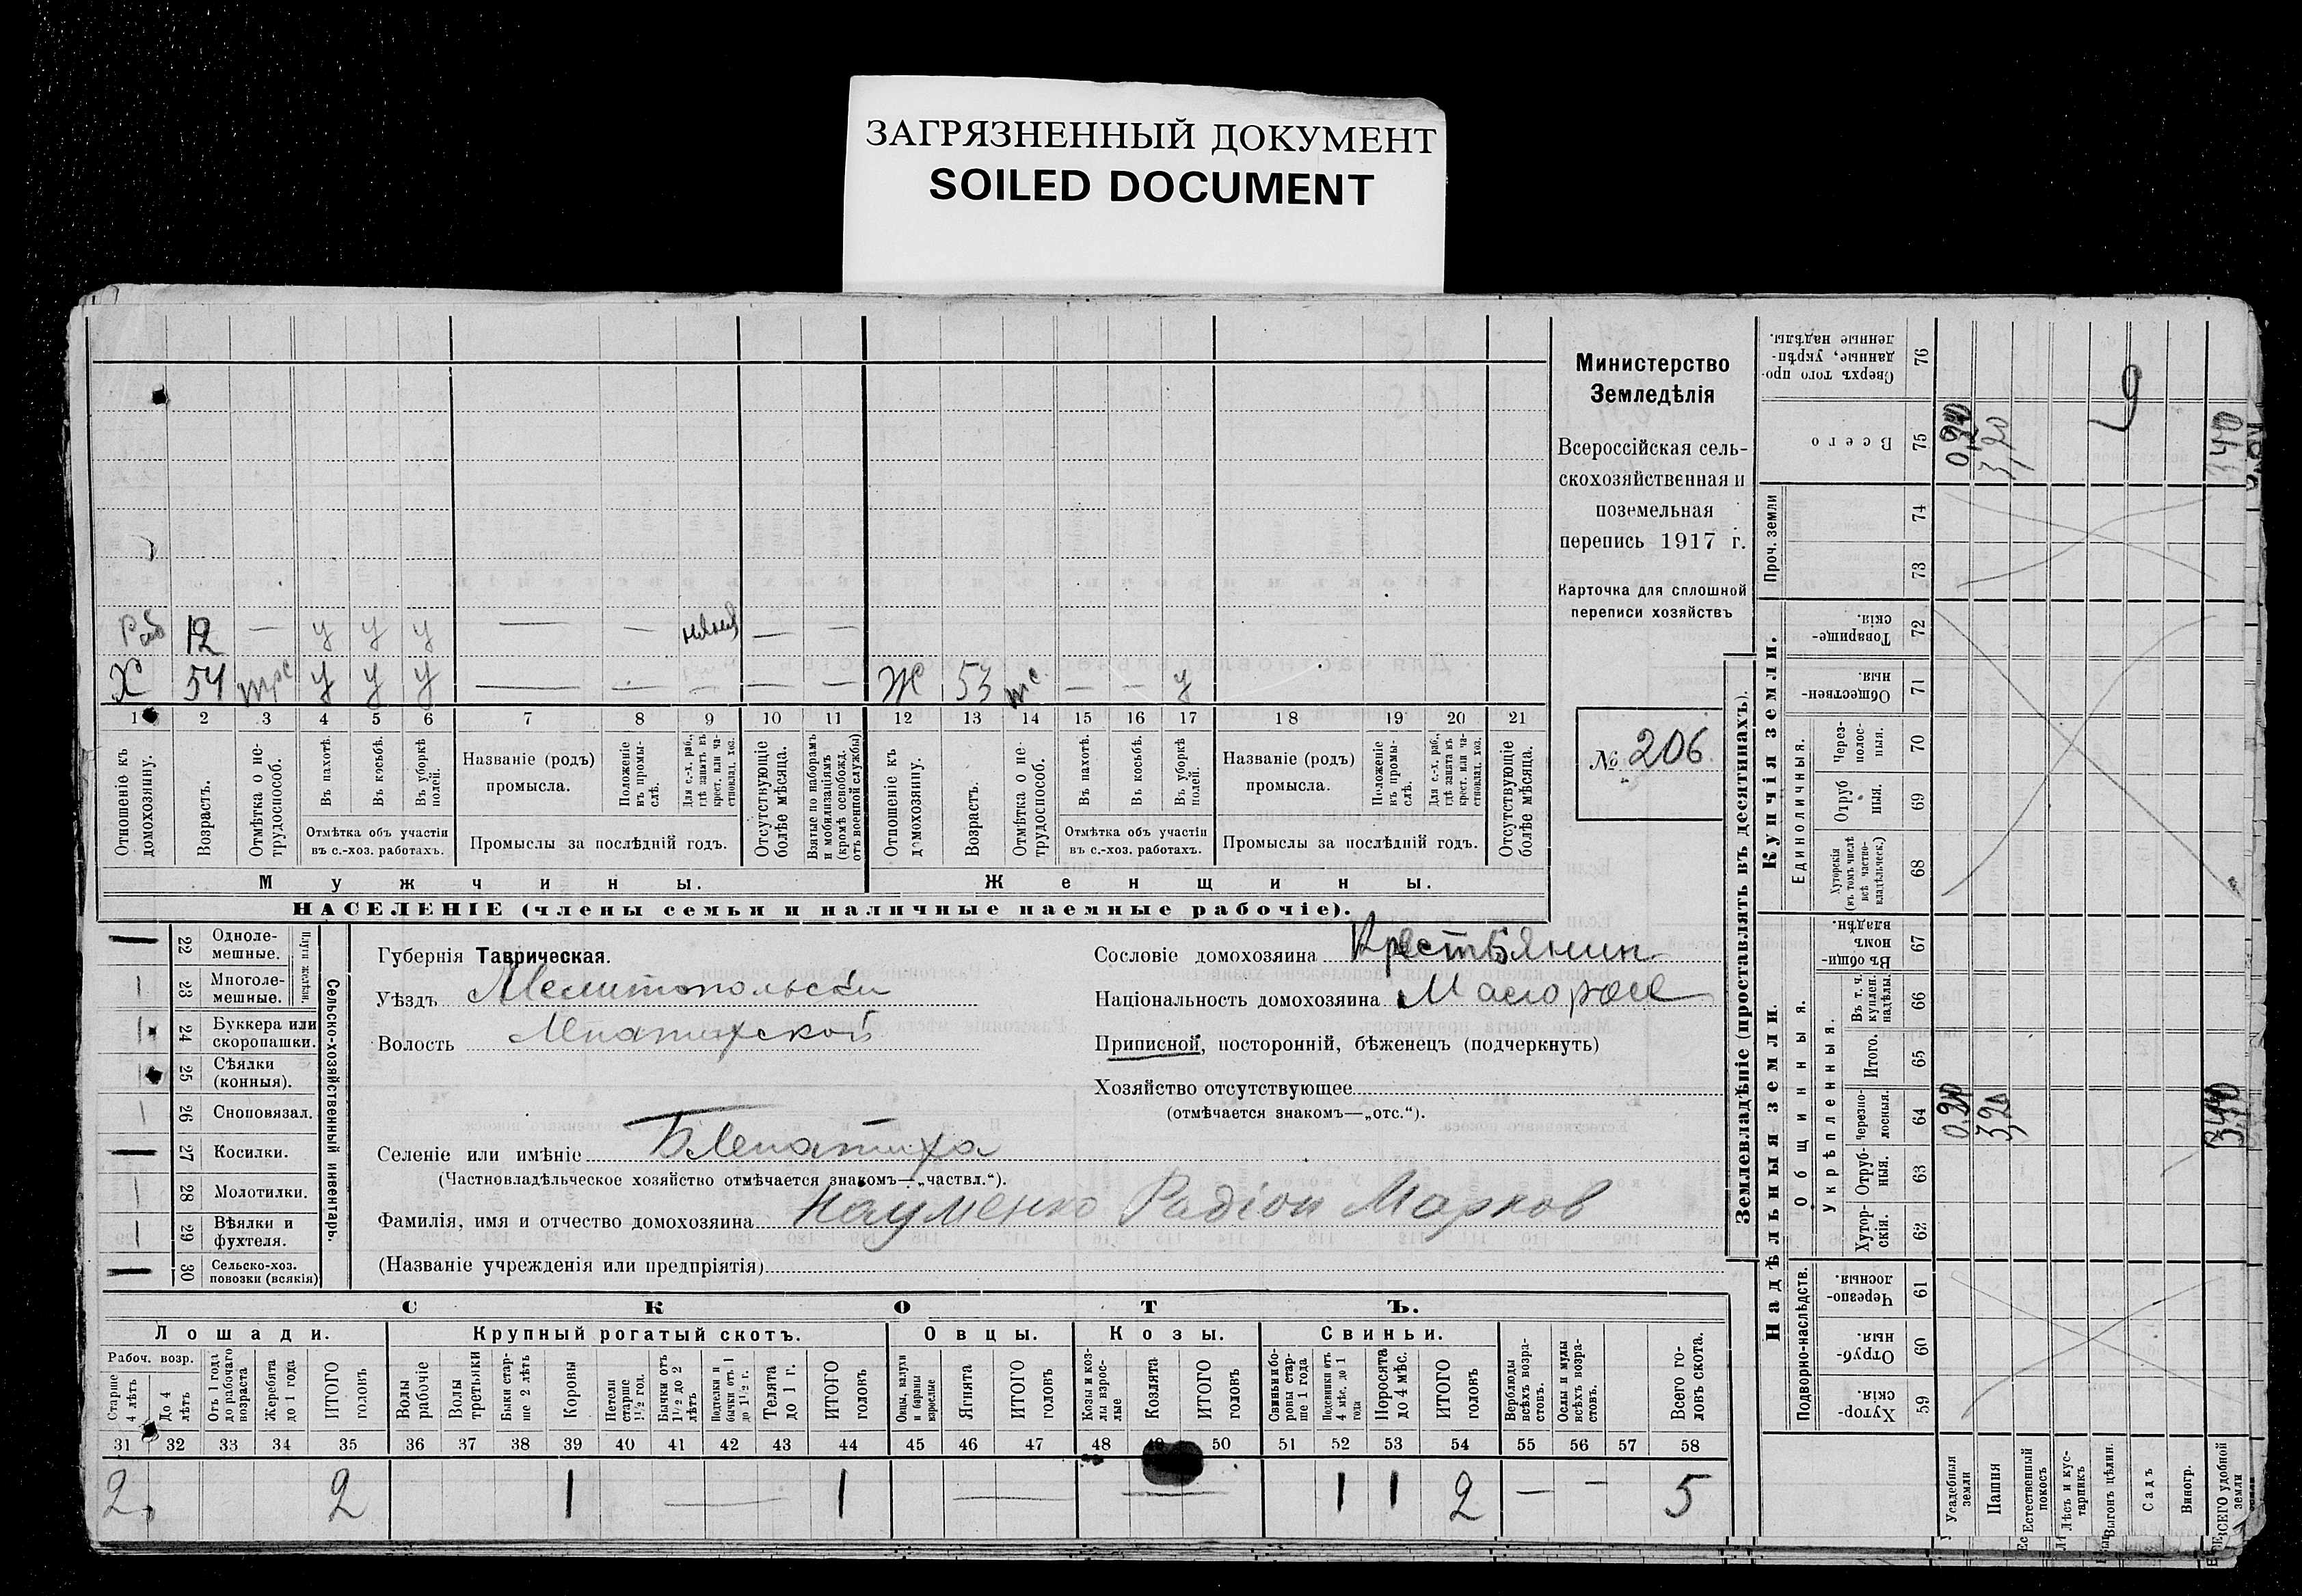 ЗАГРЯЗНЕННЫЙ ДОКУМЕНТ
SOILED DOCUMENT
Раб 12 — у у у — — — —
Х 54 у у у — — — — Ж 53 — — у
1 2 3 4 5 6 7 8 9 10 11 12 13 14 15 16 17 18 19 20 21
Отношеніе къ домохозяину.
Возрастъ.
Отмѣтка о не-трудоспособ.
Въ пахотѣ.
Въ косьбѣ.
Въ уборкѣ полей.
Отмѣтка объ участіи
въ с.-хоз. работахъ.
Названіе (родъ)
промысла.
Положеніе въ промы-слѣ.
Для с.-х. раб., гдѣ занятъ въ крест. или ча-стновлад. хоз.
Промыслы за послѣдній годъ.
Отсутствующіе болѣе мѣсяца.
Взятые по наборамъ и мобилизаціямъ (кромѣ освобожд. отъ военной службы)
Отношеніе къ домохозяину.
Возрастъ.
Отмѣтка о не-трудоспособ.
Въ пахотѣ.
Въ косьбѣ.
Въ уборкѣ полей.
Отмѣтка объ участіи
въ с.-хоз. работахъ.
Названіе (родъ)
промысла.
Положеніе въ промы-слѣ.
Для с.-х. раб., гдѣ занята въ крест. или ча-стновлад. хоз.
Промыслы за послѣдній годъ.
Отсутствующіе болѣе мѣсяца.
Мужчины.
Женщины.
НАСЕЛЕНІЕ (члены семьи и наличные наемные рабочіе).
Министерство
Земледѣлія
Всероссійская сель-
скохозяйственная и
поземельная
перепись 1917 г.
Карточка для сплошной
переписи хозяйствъ
№ 206
22 Одноле-мешные.
23 Многоле-мешные.
Плуги желѣзн.
24 Буккера или скоропашки.
25 Сѣялки (конныя).
26 Сноповязал.
27 Косилки.
28 Молотилки.
29 Вѣялки и фухтеля.
30 Сельско-хоз. повозки (всякія)
Сельско-хозяйственный инвентарь.
Губернія Таврическая.
Уѣздъ Мелитопольскій
Волость Лепатихской
Сословіе домохозяина Крестьянин
Національность домохозяина Малоросс
Приписной, посторонній, бѣженецъ (подчеркнуть)
Хозяйство отсутствующее
(отмѣчается знакомъ—„отс.“).
Селеніе или имѣніе Б Лепатиха
(Частновладѣльческое хозяйство отмѣчается знакомъ—„частвл.“).
Фамилія, имя и отчество домохозяина Науменко Радіон Марков
(Названіе учрежденія или предпріятія)
СКОТЪ.
Лошади. Крупный рогатый скотъ. Овцы. Козы. Свиньи.
Рабоч. возр.
Старше 4 лѣтъ
До 4 лѣтъ
Отъ 1 года до рабочаго возраста
Жеребята до 1 года
ИТОГО головъ
Волы рабочіе
Волы третьяки
Быки стар-ше 2 лѣтъ
Коровы
Нетели старше 1½ год.
Бычки отъ 1½ до 2 лѣтъ
Подтелки и бычки отъ 1 до 1½ г.
Телята до 1 г.
ИТОГО головъ
Овцы, валухи и бараны взрослые
Ягнята
ИТОГО головъ
Козы и коз-лы взрос-лые
Козлята
ИТОГО головъ
Свиньи и бо-ровы стар-ше 1 года
Подсвинки отъ 4 мѣс. до 1 года
Поросята до 4 мѣс.
ИТОГО головъ
Верблюды всѣхъ возра-стовъ.
Ослы и мулы всѣхъ возра-стовъ.
Всего го-ловъ скота.
31 32 33 34 35 36 37 38 39 40 41 42 43 44 45 46 47 48 49 50 51 52 53 54 55 56 57 58
2 2 1 — 1 — — 1 1 2 — — 5
Землевладѣніе (проставлять въ десятинахъ).
Купчія земли.
Надѣльныя земли.
Сверхъ того про-данные, укрѣп-ленные надѣлы. 76
Всего 75 3,20
Проч. земли 74 73
Товарище-скія. 72
Обществен-ныя. 71
Единоличныя.
Через-полос-ныя. 70
Отруб ныя. 69
Хуторскія (въ томъ числѣ всѣ частно-владѣльческ.) 68
Общинныя.
Въ общин-номъ владѣн. 67
Укрѣпленныя.
Въ т. ч. куплен. надѣлы. 66
Итого. 65
Черезпо-лосныя. 64 3,20
Отруб-ныя. 63
Хутор-скія. 62
Подворно-наслѣдств.
Черезпо-лосныя 61
Отруб-ныя. 60
Хутор-скія. 59
Усадебныя земли
Пашня
Естественный покосъ
Лѣсъ и кус-тарникъ
Выгонъ цѣлин.
Садъ
Виногр.
ВСЕГО удобной земли